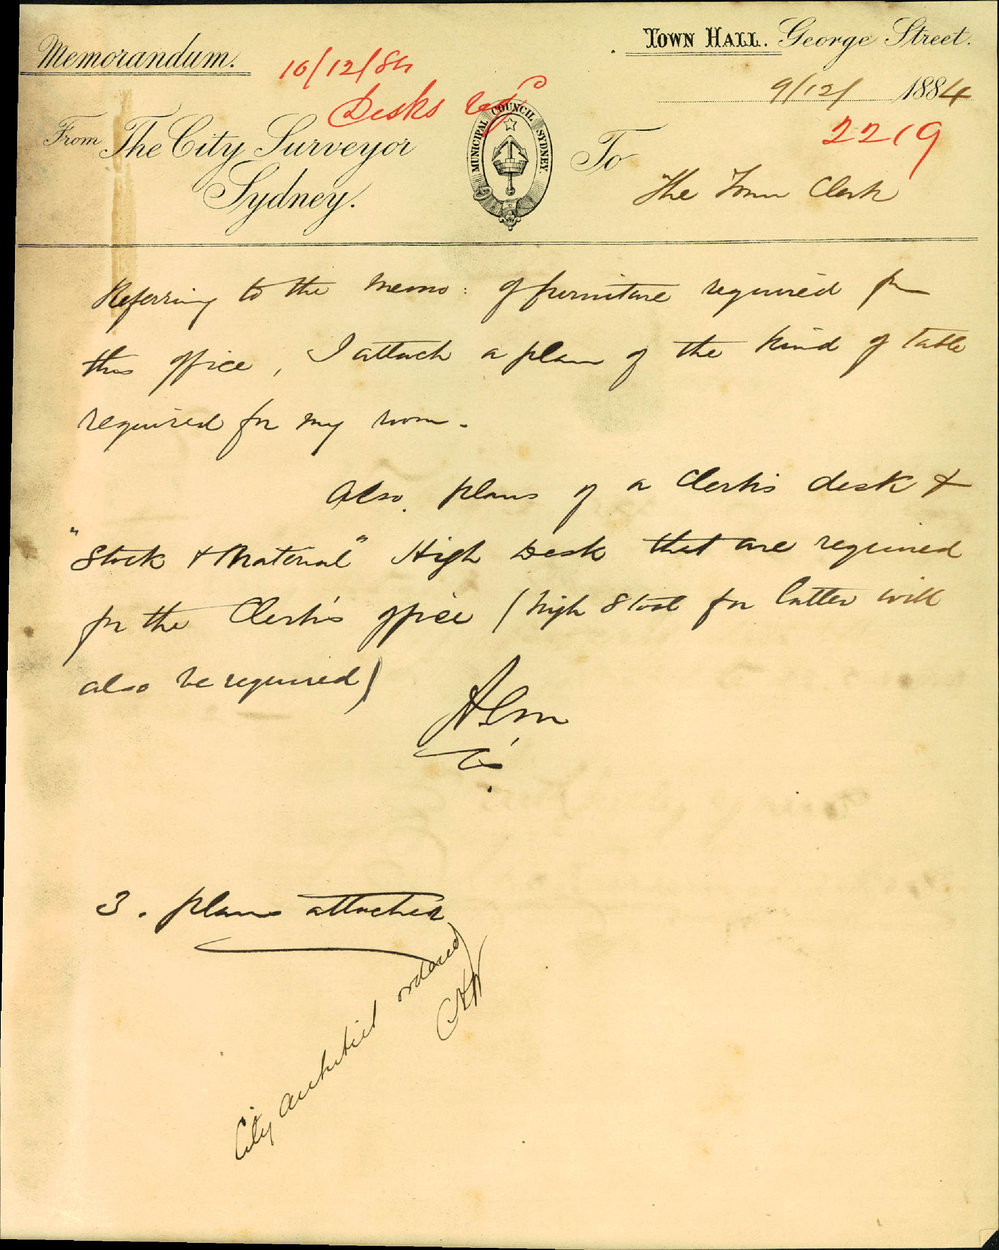 Memorandum.
Town Hall. George Street.
10/12/84
9/12/ 1884
Desks
2219
From The City Surveyor
Sydney.
MUNICIPAL COUNCIL SYDNEY
To
The Town Clerk
Referring to the memo: of furniture required for
this office, I attach a plan of the kind of table
required for my room.
Also, plans of a Clerk's desk &
"Stock & Material" High Desk that are required
for the Clerk's office (high stool for latter will
also be required)
CS
3. plans attached
City architect ordered